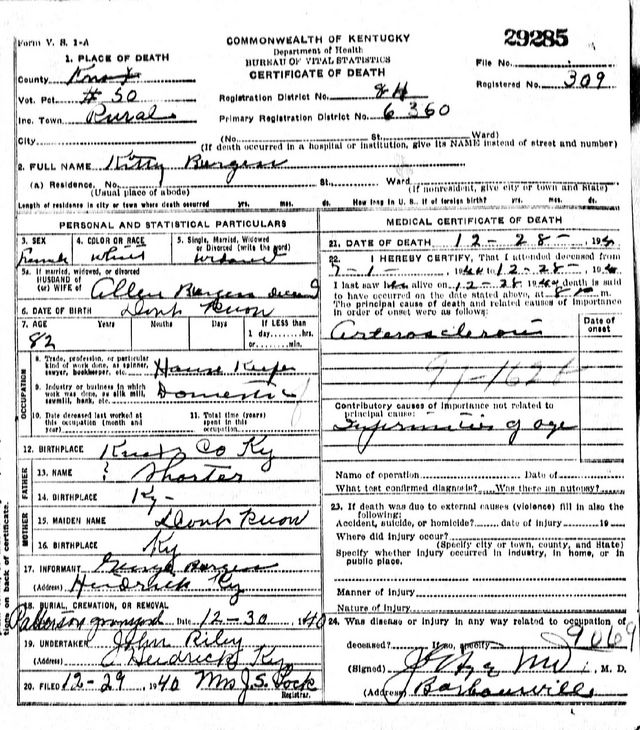 Form V. S. 1-A
COMMONWEALTH OF KENTUCKY
Department of Health
BUREAU OF VITAL STATISTICS
CERTIFICATE OF DEATH
29285
File No.
Registered No. 309
1. PLACE OF DEATH
County Knox
Vot. Pct. #50
Inc. Town Rural
City
Registration District No.
Primary Registration District No. 6360
(No. St. Ward)
(If death occurred in a hospital or institution, give its NAME instead of street and number)
2. FULL NAME Kitty Burgess
(a) Residence. No. St. Ward.
(Usual place of abode) (If nonresident, give city or town and State)
Length of residence in city or town where death occurred yrs. mos. ds. How long in U. S., if of foreign birth? yrs. mos. ds.
PERSONAL AND STATISTICAL PARTICULARS
3. SEX
Female
4. COLOR OR RACE
White
5. Single, Married, Widowed
or Divorced (write the word)
5a. If married, widowed, or divorced
HUSBAND of
(or) WIFE of Allen Burgess
6. DATE OF BIRTH Dont Know
7. AGE Years Months Days If LESS than
1 day......hrs.
or......min.
82
OCCUPATION
8. Trade, profession, or particular
kind of work done, as spinner,
sawyer, bookkeeper, etc. House Keeper
9. Industry or business in which
work was done, as silk mill,
sawmill, bank, etc. Domestic
10. Date deceased last worked at
this occupation (month and
year)
11. Total time (years)
spent in this
occupation
12. BIRTHPLACE Knox Co Ky
FATHER
13. NAME ? Shorter
14. BIRTHPLACE Ky -
MOTHER
15. MAIDEN NAME Dont Know
16. BIRTHPLACE Ky
17. INFORMANT George Burgess
(Address) Hendrick Ky
18. BURIAL, CREMATION, OR REMOVAL
Patterson graveyard Date 12-30 1940
19. UNDERTAKER John Riley
(Address) Hendrick Ky
20. FILED 12-29 1940 Mrs J.S. Lock
Registrar.
MEDICAL CERTIFICATE OF DEATH
21. DATE OF DEATH 12-28- 194
22. I HEREBY CERTIFY, That I attended deceased from
7-1-, 1940 to 12-28-, 194
I last saw her alive on 12-28 1940 death is said
to have occurred on the date stated above, at 8 m.
The principal cause of death and related causes of importance
in order of onset were as follows:
Date of
onset
Arterosclerosis
97-162
Contributory causes of importance not related to
principal cause:
Infirmities of age
Name of operation Date of
What test confirmed diagnosis? Was there an autopsy?
23. If death was due to external causes (violence) fill in also the
following:
Accident, suicide, or homicide? date of injury 19
Where did injury occur?
(Specify city or town, county, and State)
Specify whether injury occurred in industry, in home, or in
public place.
Manner of injury
Nature of injury
24. Was disease or injury in any way related to occupation of
deceased? If so, specify
9069
(Signed) M. D.
(Address) Barbourville
tions on back of certificate.